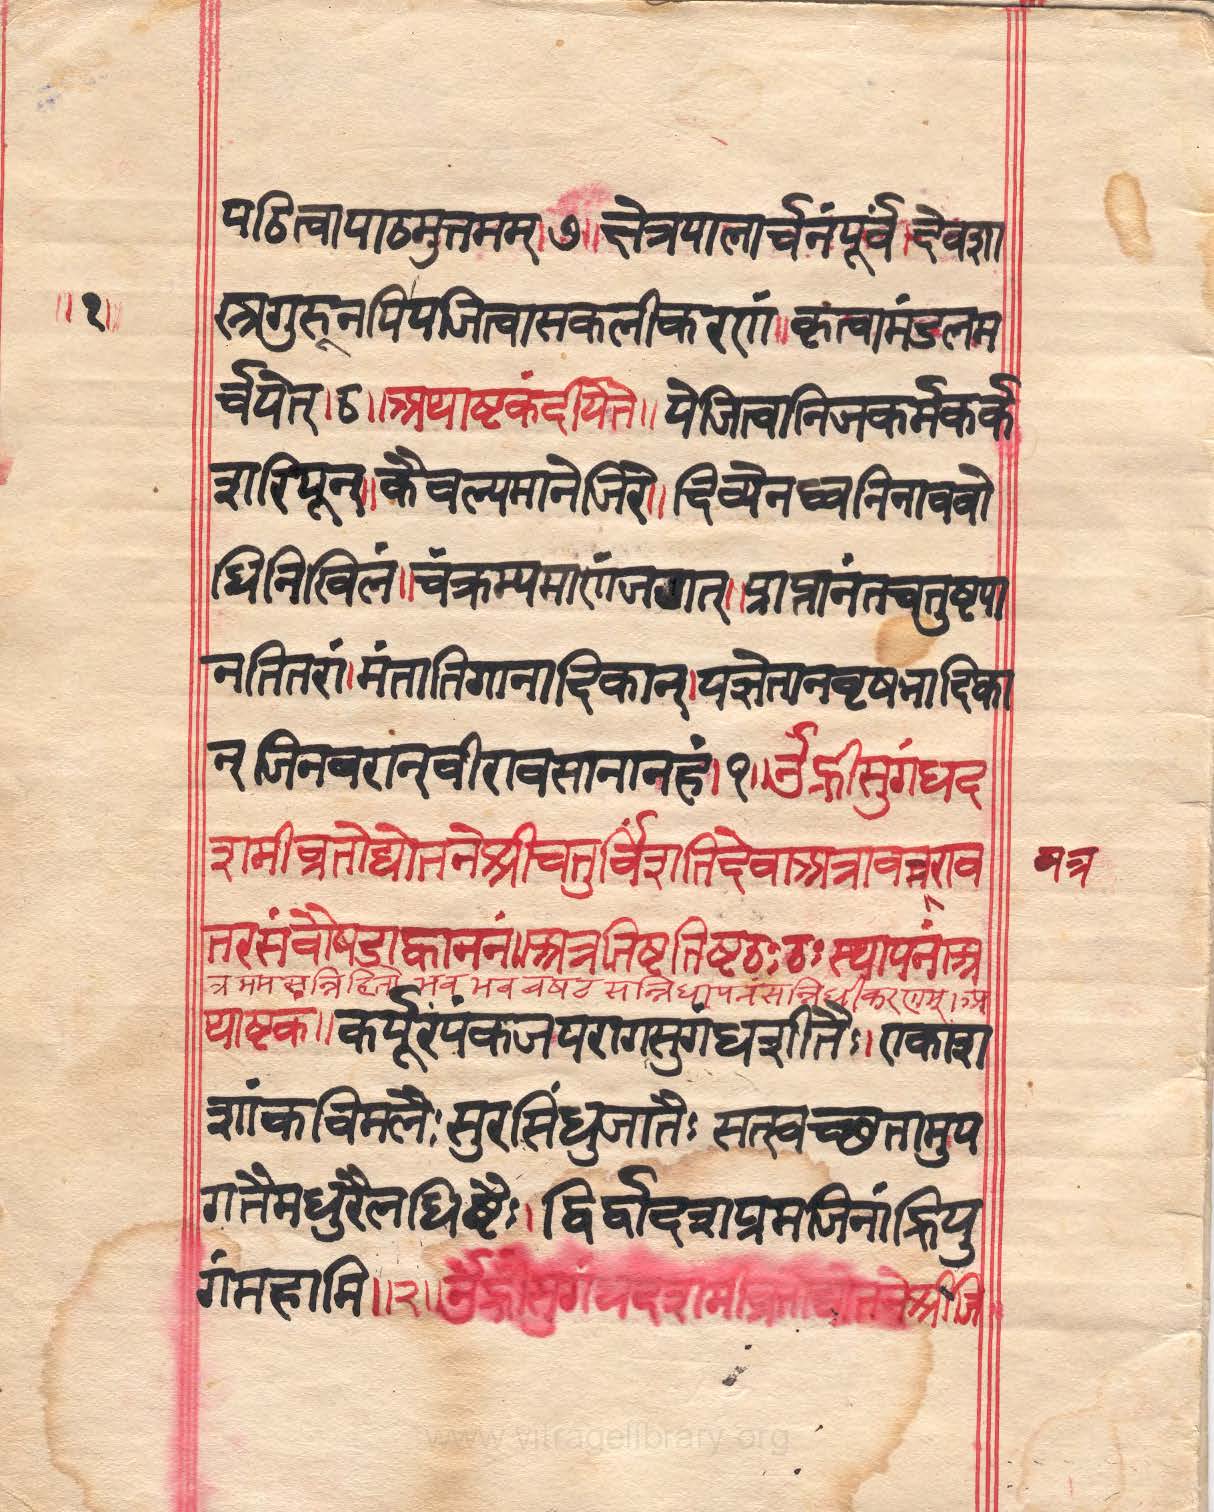 पठित्वापाठमुत्तमम्।७॥क्षेत्रपालार्चनंपूर्वं।देवशा
॥१॥
स्त्रगुरूनपिपजित्वासकलीकरणं॥कृत्वामंडलम
र्चयेत्।८॥अथाष्टकंदीयेते॥येजित्वानिजकर्मकर्क
शरिपून्॥कैवल्यमानेजिरे॥दिव्येनध्वनिनाववो
धिनिखिलं॥चंक्रम्यमाणंजगत्॥प्राप्तानंतचतुष्टया
नतितरां।मंतातिगानादिकान्।यज्ञेतान्वृषभादिका
न्जिनवरान्वीरावसानानहं।१॥ॐह्रीसुगंधद
शमीव्रतोद्योतनेश्रीचतुर्विंशतिदेवाअत्रावतराव
अत्र
तरसंवौषडाह्वाननं॥अत्रतिष्टतिष्टठःठःस्थापनं।अ
त्र मम सन्निहितो भव भव वषट सन्निधापनंसन्निधीकरणम्।अ
थाष्टक॥कर्पूरपंकजपरागसुगंधशीतैः।एकाश
शांकविमलैःसुरसिंधुजातैःसत्स्वच्छतामुप
गतैमधुरैलघिष्टैः।द्विर्द्वादशप्रमजिनांह्रियु
गंमहामि॥२॥ॐह्रीसुगंधदशमीव्रतोद्योतनेश्रीजि
www.vitragelibrary.org